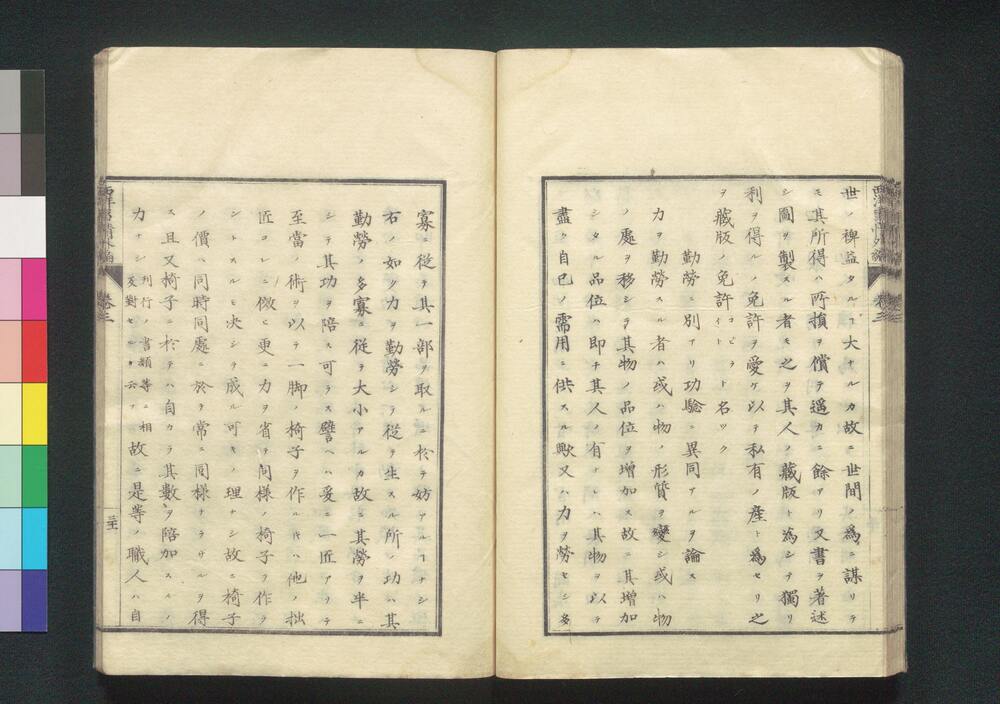 世ノ裨益タルヿ大ナルカ故ニ世間ノ為ニ謀リテ
モ其所得ハ所損ヲ償テ遥カニ餘アリ又書ヲ著述
シ圖ヲ製スル者モ之ヲ其人ノ藏版ト為シテ獨リ
利ヲ得ルノ免許ヲ受ケ以テ私有ノ産ト為セリ之
ヲ藏版ノ免許コピライトト名ツク
勤勞ニ別アリ功驗ニ異同アルヲ論ス
力ヲ勤勞スル者ハ或ハ物ノ形質ヲ變シ或ハ物
ノ處ヲ移シテ其物ノ品位ヲ增加ス故ニ其增加
シタル品位ハ即チ其人ノ有トシハ其物ヲ以テ
盡ク自已ノ需用ニ供スル歟又ハ力ヲ勞セシ多
寡ニ從テ其一部ヲ取ルニ於テ妨アルヿナシ
右ノ如ク力ヲ勤勞シテ從テ生スル所ノ功ハ其
勤勞ノ多寡ニ從テ大小アルカ故ニ其勞ヲ半ニ
シテ其功ヲ陪ス可ラス譬ヘハ爰ニ一匠アリテ
至當ノ術ヲ以テ一脚ノ椅子ヲ作ルキハ他ノ拙
匠コレニ傚ヒ更ニ力ヲ省テ同様ノ椅子ヲ作ラ
ントスルモ决シテ成ル可キノ理ナシ故ニ椅子
ノ價ハ同時同處ニ於テ常ニ同様ナラサルヲ得
ス且又椅子ニ於テハ自カラ其數ヲ陪加スルノ
力ナシ刊行ノ書類等ニ相反對セルヲ云フ故ニ是等ノ職人ハ自
西洋事情外編
卷三